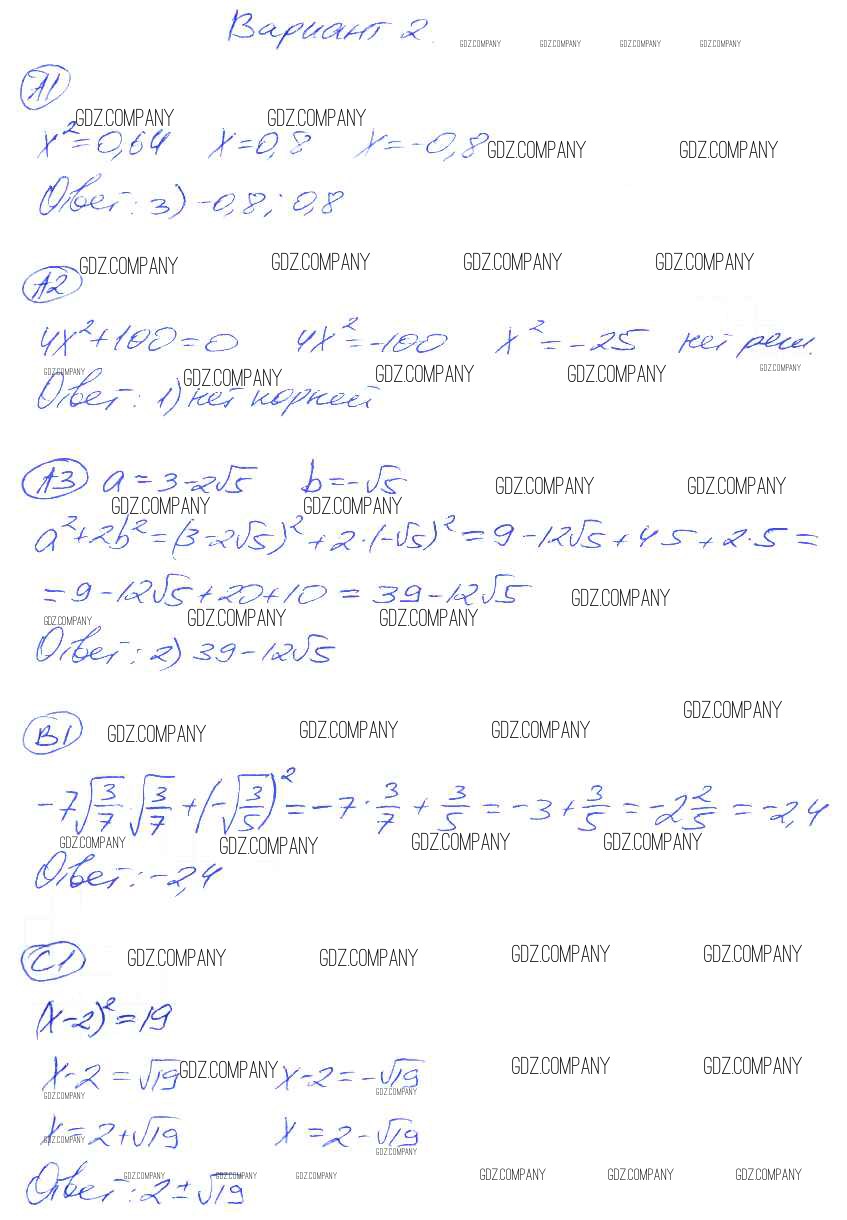 Вариант 2.
GDZ.COMPANY GDZ.COMPANY GDZ.COMPANY GDZ.COMPANY
А1
GDZ.COMPANY GDZ.COMPANY
x² = 0,64 x = 0,8 x = -0,8
GDZ.COMPANY GDZ.COMPANY
Ответ: 3) -0,8; 0,8
GDZ.COMPANY GDZ.COMPANY GDZ.COMPANY GDZ.COMPANY
А2
4x² + 100 = 0 4x² = -100 x² = -25 нет реш.
GDZ.COMPANY GDZ.COMPANY GDZ.COMPANY GDZ.COMPANY GDZ.COMPANY
Ответ: 1) нет корней
А3 a = 3 - 2√5 b = -√5
GDZ.COMPANY GDZ.COMPANY
GDZ.COMPANY GDZ.COMPANY
a² + 2b² = (3 - 2√5)² + 2·(-√5)² = 9 - 12√5 + 4·5 + 2·5 =
= 9 - 12√5 + 20 + 10 = 39 - 12√5
GDZ.COMPANY
GDZ.COMPANY GDZ.COMPANY GDZ.COMPANY
Ответ: 2) 39 - 12√5
GDZ.COMPANY
В1
GDZ.COMPANY GDZ.COMPANY GDZ.COMPANY
-7√(3/7)·√(3/7) + (-√(3/5))² = -7·3/7 + 3/5 = -3 + 3/5 = -2 2/5 = -2,4
GDZ.COMPANY GDZ.COMPANY GDZ.COMPANY GDZ.COMPANY
Ответ: -2,4
С1
GDZ.COMPANY GDZ.COMPANY GDZ.COMPANY GDZ.COMPANY
(x-2)² = 19
x-2 = √19 x-2 = -√19
GDZ.COMPANY GDZ.COMPANY GDZ.COMPANY
GDZ.COMPANY GDZ.COMPANY
x = 2+√19 x = 2-√19
GDZ.COMPANY GDZ.COMPANY
GDZ.COMPANY GDZ.COMPANY GDZ.COMPANY GDZ.COMPANY GDZ.COMPANY GDZ.COMPANY
Ответ: 2 ± √19